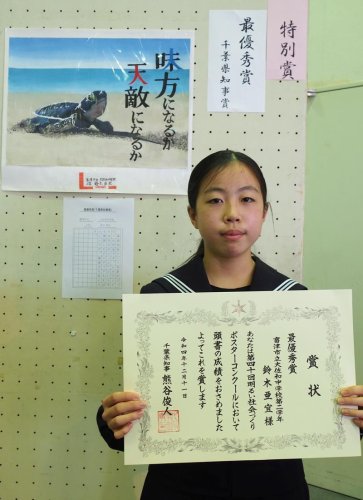 特別賞
最優秀賞
千葉県知事賞
味方になるか
天敵になるか
賞状
最優秀賞
富津市立大佐和中学校第二学年
鈴木亜宜様
あなたは第四十回明るい社会づくり
ポスターコンクールにおいて
頭書の成績をおさめました
よってこれを賞します
令和四年十二月十一日
千葉県知事 熊谷俊人